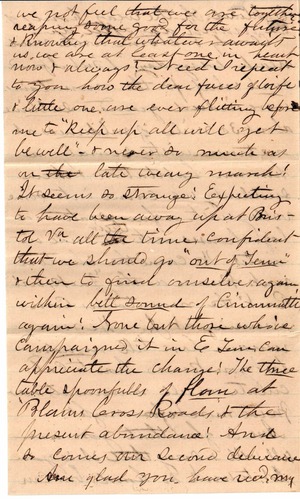 we not feel that we are together
reaping some good for the future
& knowing that whatever awaits
us, we are at least one in heart
now & always! Need I repeat
to you how the dear faces of wife
& little one are ever flitting before
me to "Keep up all will yet
be well" & never so much as
in the late weary march!
It seems so strange! Expecting
to have been away up at Bris-
tol Va. all the time. Confident
that we should go "out of Tenn"
& then to find ourselves again
within bell sound of Cincinnatti
again! None but those who've
Campaigned it in E Tenn can
appreciate the change! The three
table spoonfulls of flour at
Blains Cross Roads, & the
present abundance! And
so comes our second
Am glad you have read my